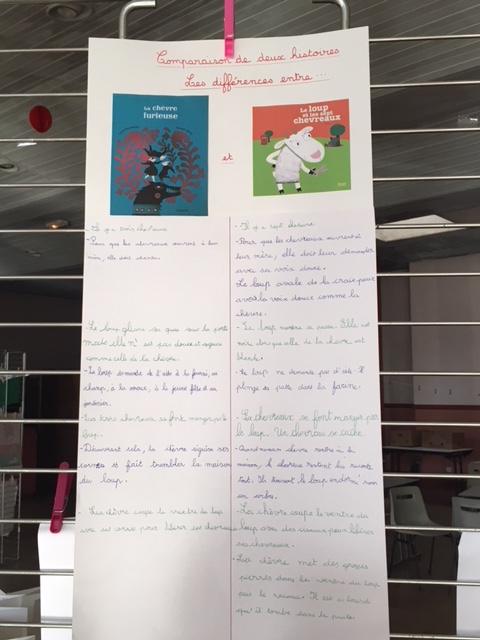 Comparaison de deux histoires
Les différences entre ...
La chèvre
furieuse
et
Le loup
et les sept
chevreaux
- Il y a trois chevreaux
- Pour que les chevreaux ouvrent à leur
mère, elle doit chanter.
- Le loup glisse sa queue sous la porte
mais elle n'est pas douce et soyeuse
comme celle de la chèvre.
- Le loup demande de l'aide à la fourmi, au
champ, à la source, à la jeune fille et au
- Les trois chevreaux se font manger par le
loup.
- Découvrant cela, la chèvre aiguise ses
cornes et fait trembler la maison
du loup.
- La chèvre coupe le ventre du loup
avec ses cornes pour libérer ses chevreaux
- Il y a sept
- Pour que les chevreaux ouvrent à
leur mère, elle doit leur demander
avec sa voix douce.
Le loup avale de la craie pour
avoir la voix douce comme la
chèvre.
- Le loup montre sa patte. Elle est
noire alors que celle de la chèvre est
blanche.
- Le loup ne demande pas d'aide. Il
plonge sa patte dans la farine.
- La chevreaux se font manger par
le loup. Un chevreau se cache.
- Quand maman chèvre rentre à la
maison, le chevreau restant lui raconte
tout. Ils trouvent le loup endormi sous
un arbre.
- La chèvre coupe le ventre du
loup avec des ciseaux pour libérer
ses chevreaux.
- La chèvre met des grosses
pierres dans le ventre du loup
puis le recoud. Il est si lourd
qu'il tombe dans le puits.